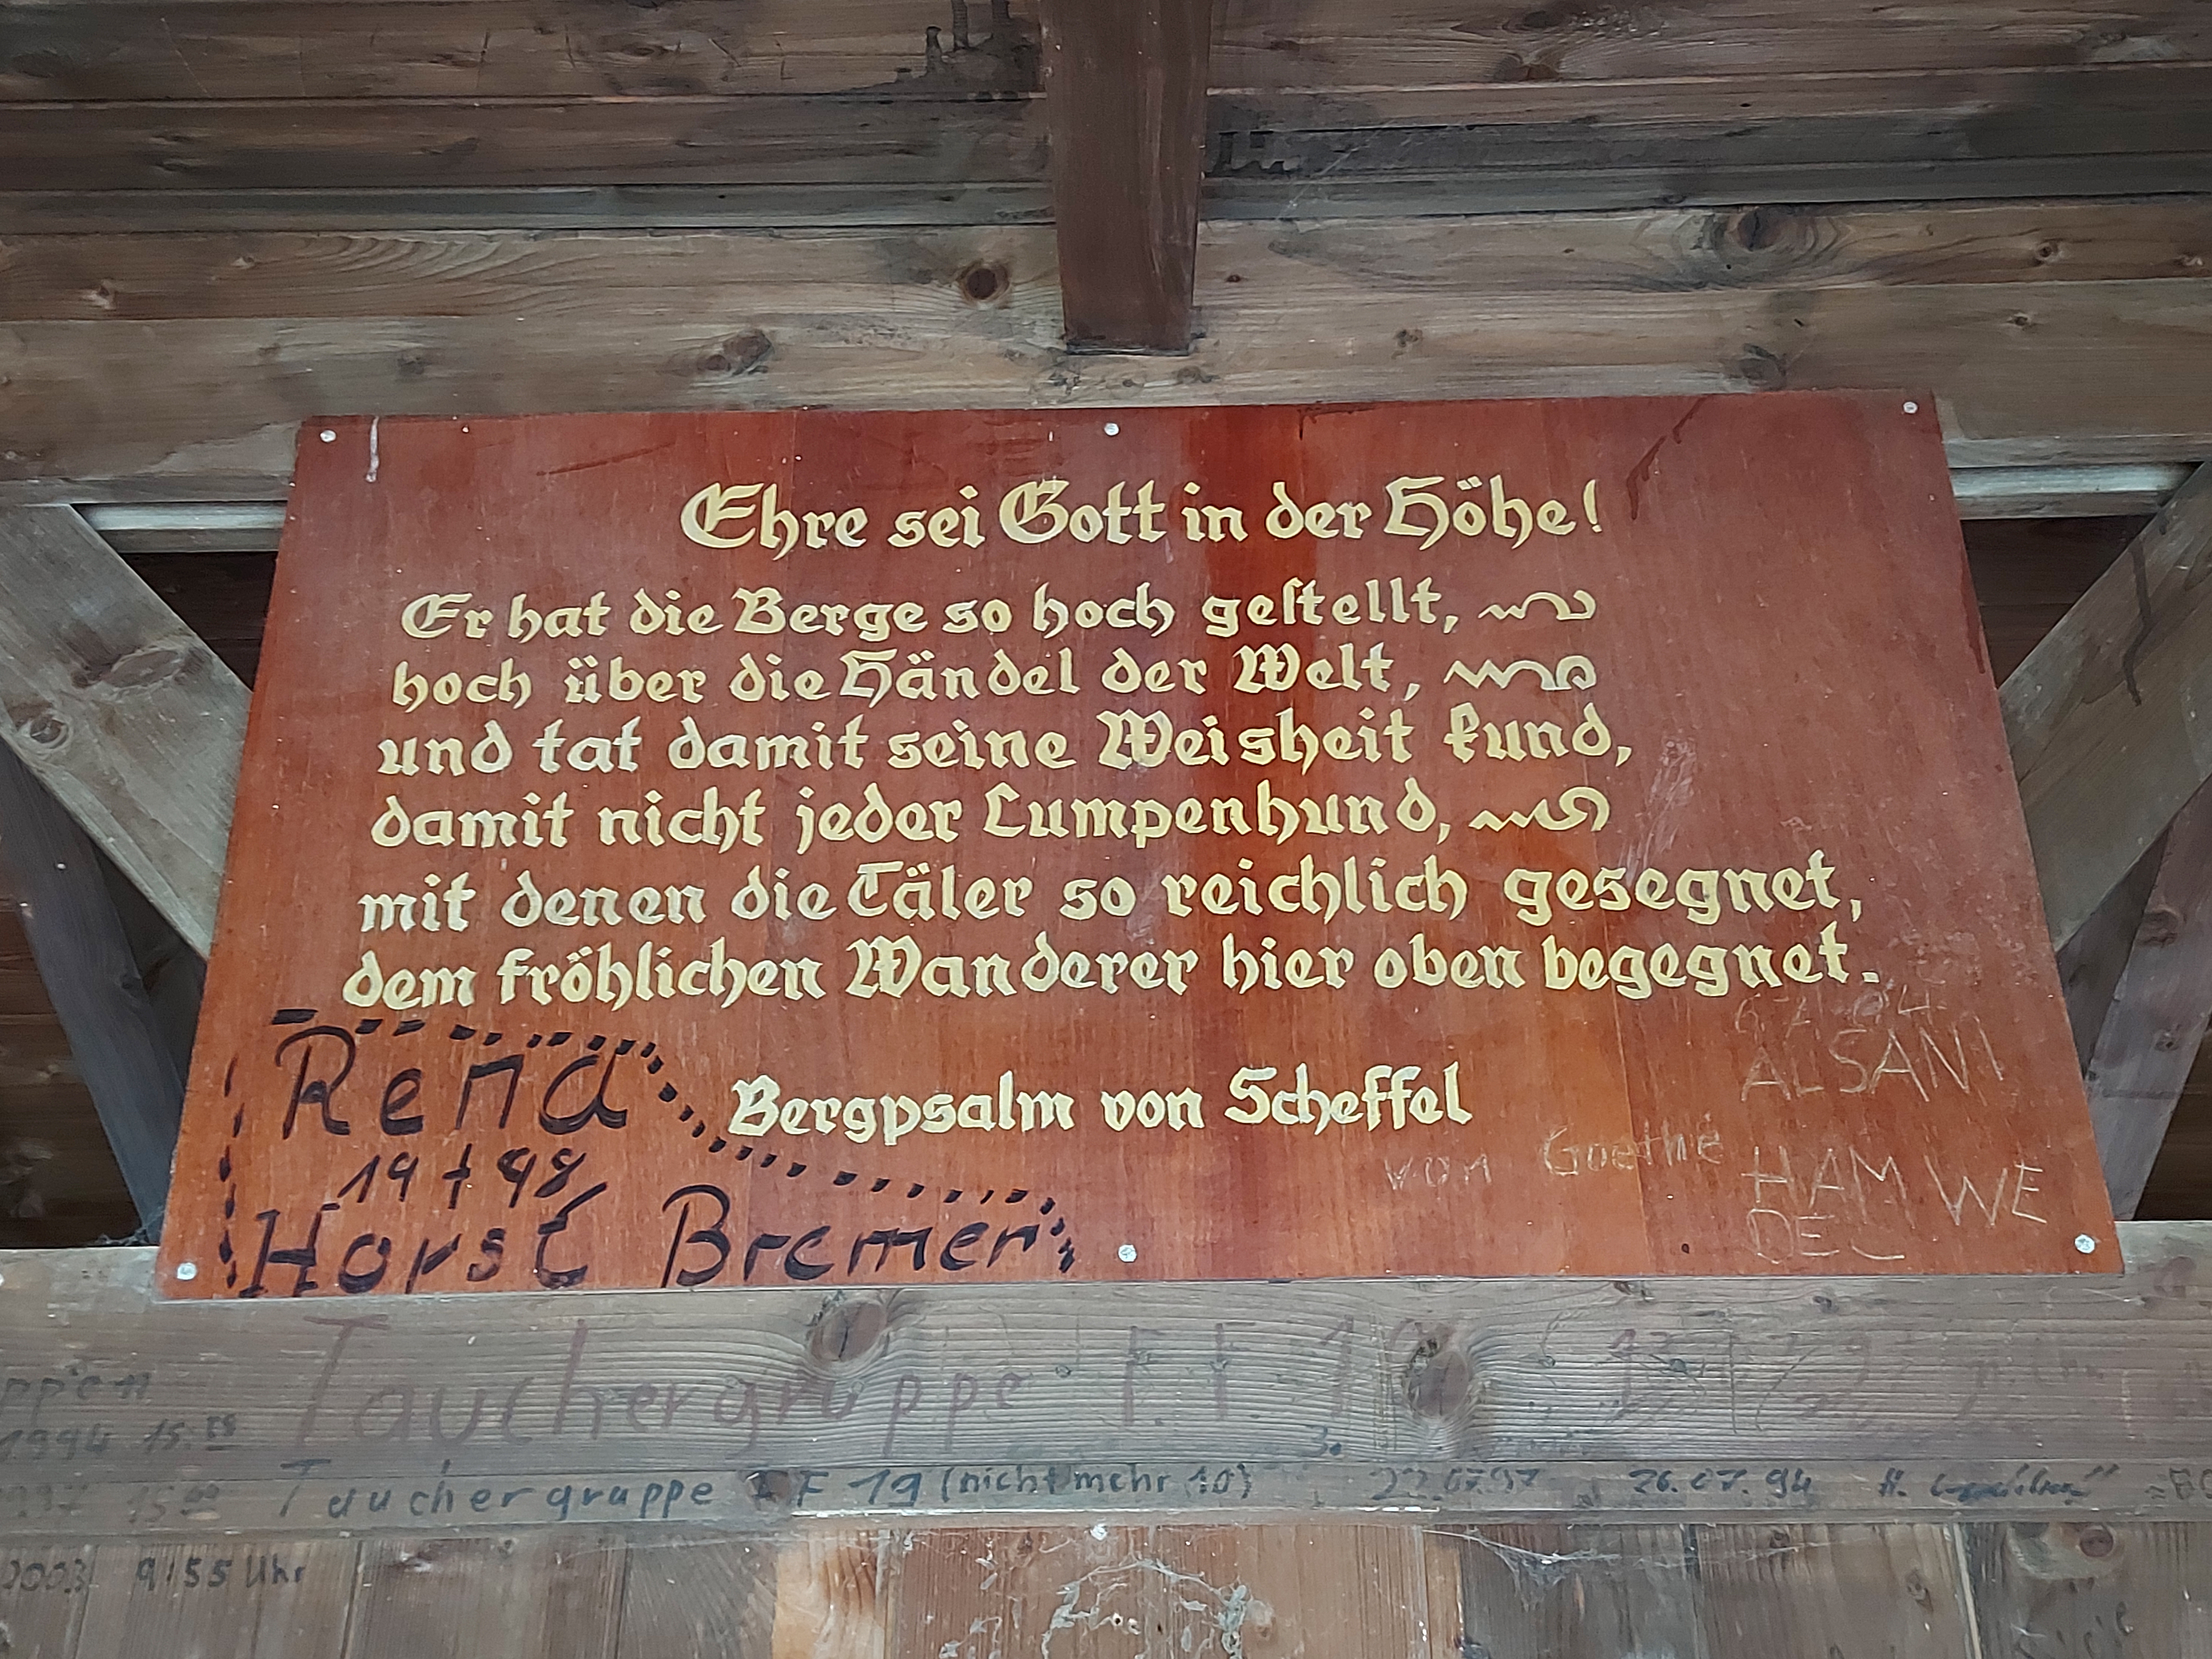 Ehre sei Gott in der Höhe!
Er hat die Berge so hoch geſtellt,
hoch über die Händel der Welt,
und tat damit seine Weisheit kund,
damit nicht jeder Lumpenhund,
mit denen die Täler so reichlich gesegnet,
dem fröhlichen Wanderer hier oben begegnet.
Bergpsalm von Scheffel
Rena
19 + 98
Horst Bremer
ALSANI
von Goethe
HAM WE
DEL
Tauchergruppe F.F.
1994 15.
Tauchergruppe FF 19 (nicht mehr 10) 22.07.97 26.07.94 H.
2003 9:55 Uhr